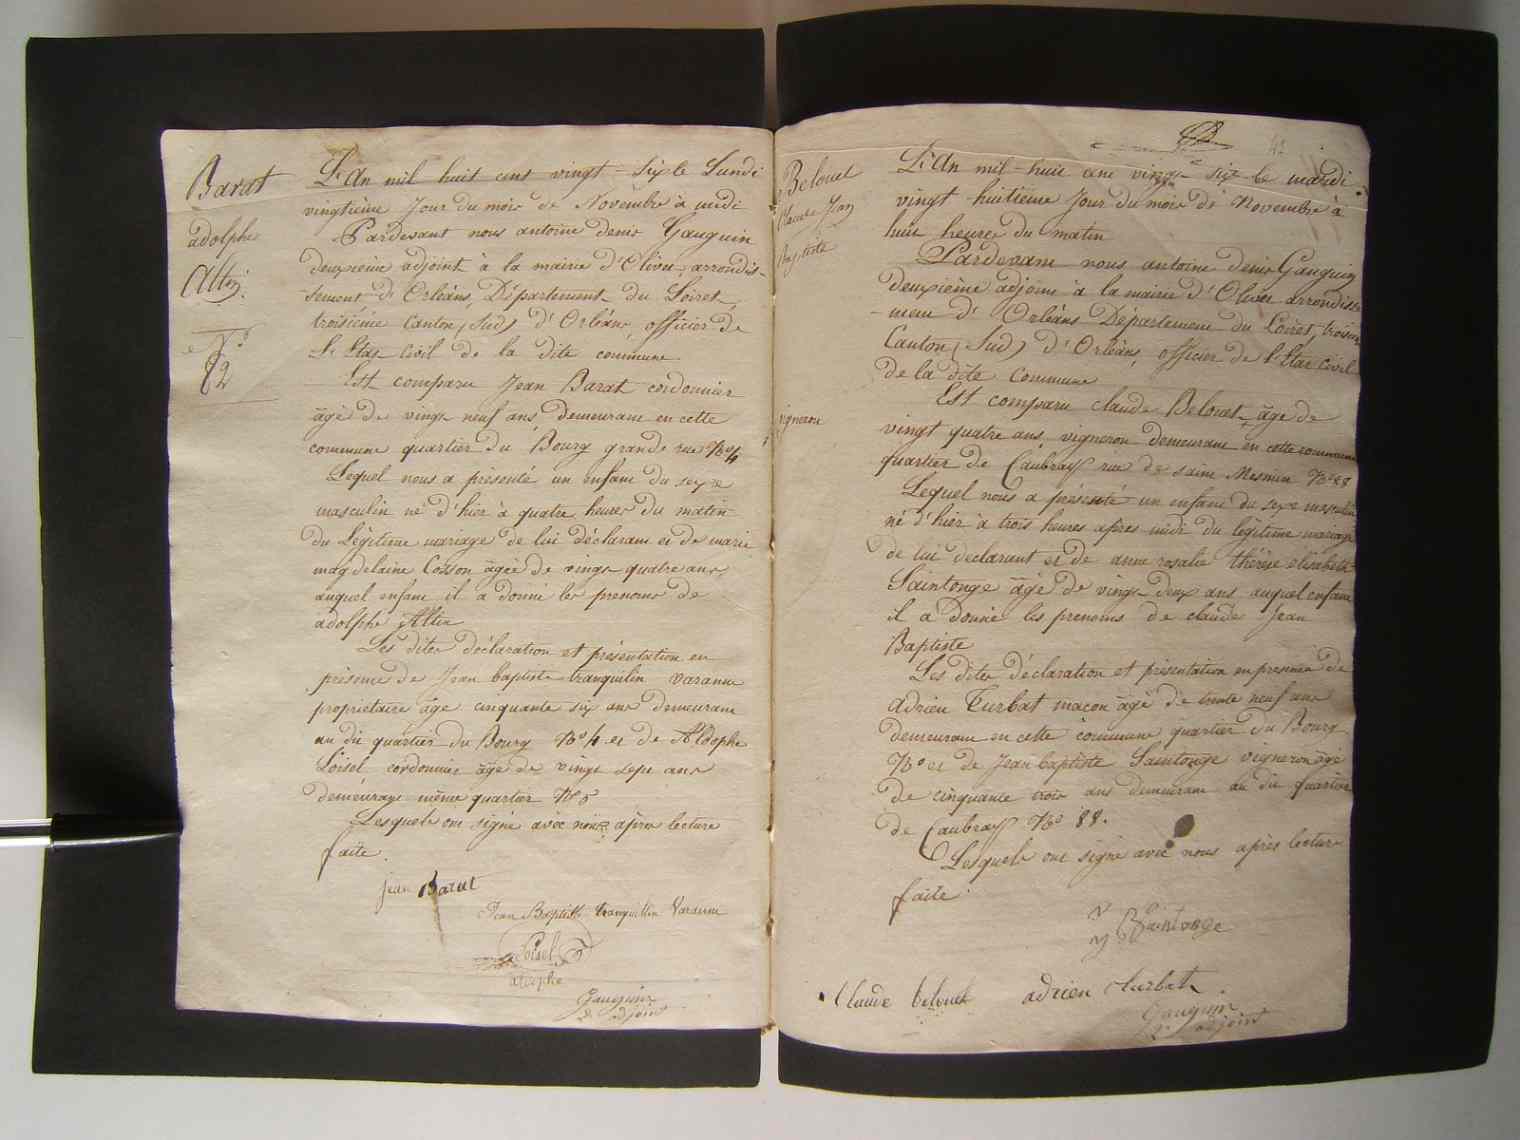 Barat
adolphe
Altin.
N.o
82
L'An mil huit cens vingt-six le Lundi
vingtième Jour du mois de Novembre à midi
Pardevant nous antoine denis Gauguin
deuxième adjoint à la mairie d'Olivet, arrondis-
-sement d'Orléans, Département du Loiret,
troisième Canton (Sud) d'Orléans, officier de
l'Etat Civil de la dite commune
Est comparu Jean Barat cordonnier
âgé de vingt neuf ans, demeurant en cette
commune quartier du Bourg grande rue No 4
Lequel nous a présenté un enfant du sexe
masculin né d'hier à quatre heures du matin
du Légitime mariage de lui déclarant et de marie
magdelaine Cosson âgée de vingt quatre ans,
auquel enfant il a donné les prenoms de
adolphe Altin
Les dites déclaration et présentation en
présence de Jean baptiste tranquilin Varanne
propriétaire âgé cinquante six ans demeurant
au dit quartier du Bourg No 4 et de Aldophe
Loisel cordonnier âgé de vingt sept ans
demeurant même quartier No
Lesquels ont signé avec nous après lecture
faite.
jean Barat
Jean Baptiste tranquillin Varanne
Loisel
adolphe
Gauguin
2e adjoint
Belouet
Claude Jean
Baptiste
vigneron
L'An mil-huit cent vingt-six le mardi
vingt-huitième Jour du mois de Novembre à
huit heures du matin
Pardevant nous antoine denis Gauguin
deuxième adjoint à la mairie d'Olivet arrondisse
-ment d'Orléans Département du Loiret, troisième
Canton (Sud) d'Orléans, officier de l'Etat Civil
de la dite Commune
Est comparu claude Belouet âgé de
vingt quatre ans, vigneron demeurant en cette commune
quartier de Caubray rue de saint Mesmin No 88
Lequel nous a présenté un enfant du sexe masculin
né d'hier à trois heures après midi du légitime mariage
de lui declarant et de anne rosalie thérèse elisabeth
Saintonge âgé de vingt deux ans auquel enfant
il a donné les prenoms de claude Jean
Baptiste
Les dites déclaration et présentation en présence de
adrien Turbat macon âgé de trente neuf ans
demeurant en cette commune quartier du Bourg
No et de Jean baptiste Saintonge vigneron âgé
de cinquante trois ans demeurant au dit quartier
de Caubray No 88.
Lesquels ont signé avec nous après lecture
faite.
Saintonge
Claude belouet adrien turbat
Gauguin
2e adjoint